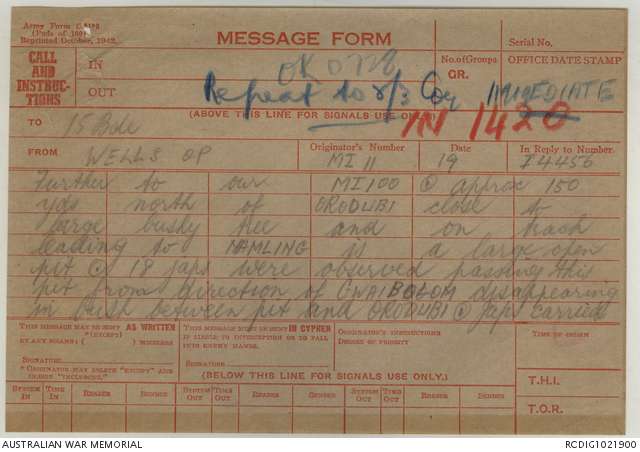 Army Form C.2128
(Pads of 100)
Reprinted October, 1942.
MESSAGE FORM
Serial No.
CALL
AND
INSTRUC-
TIONS
IN
OUT
No. of Groups
GR.
OFFICE DATE STAMP
Repeat to 2/3 Coy
IMMEDIATE
(ABOVE THIS LINE FOR SIGNALS USE ONLY.)
IN 1420
TO 15 Bde
FROM WELLS OP
Originator's Number
MI 11
Date
19
In Reply to Number
I4456
Further to our MI100 @ approx 150
yds north of ORODUBI close to
large bushy tree and on track
leading to NAMLING is a large open
pit @ 18 japs were observed passing this
pit from direction of GWAIBOLOM disappearing
in bush between pit and ORODUBI @ japs carried
THIS MESSAGE MAY BE SENT AS WRITTEN
* (EXCEPT)
BY ANY MEANS ( ) WIRELESS
SIGNATURE
* ORIGINATOR MAY DELETE "EXCEPT" AND
INSERT "INCLUDING."
THIS MESSAGE MUST BE SENT IN CYPHER
IF LIABLE TO INTERCEPTION OR TO FALL
INTO ENEMY HANDS.
SIGNATURE
ORIGINATOR'S INSTRUCTIONS
DEGREE OF PRIORITY
TIME OF ORIGIN
(BELOW THIS LINE FOR SIGNALS USE ONLY.)
T.H.I.
T.O.R.
SYSTEM IN
TIME IN
READER
SENDER
SYSTEM OUT
TIME OUT
READER
SENDER
SYSTEM OUT
TIME OUT
READER
SENDER
AUSTRALIAN WAR MEMORIAL
RCDIG1021900